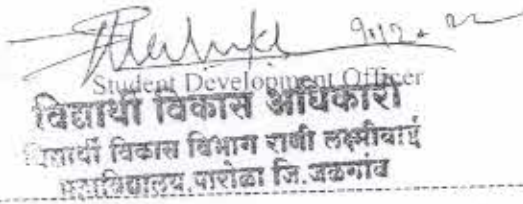 9.12.22
Student Development Officer
विद्यार्थी विकास अधिकारी
विद्यार्थी विकास विभाग राणी लक्ष्मीबाई
महाविद्यालय,पारोळा जि.जळगांव